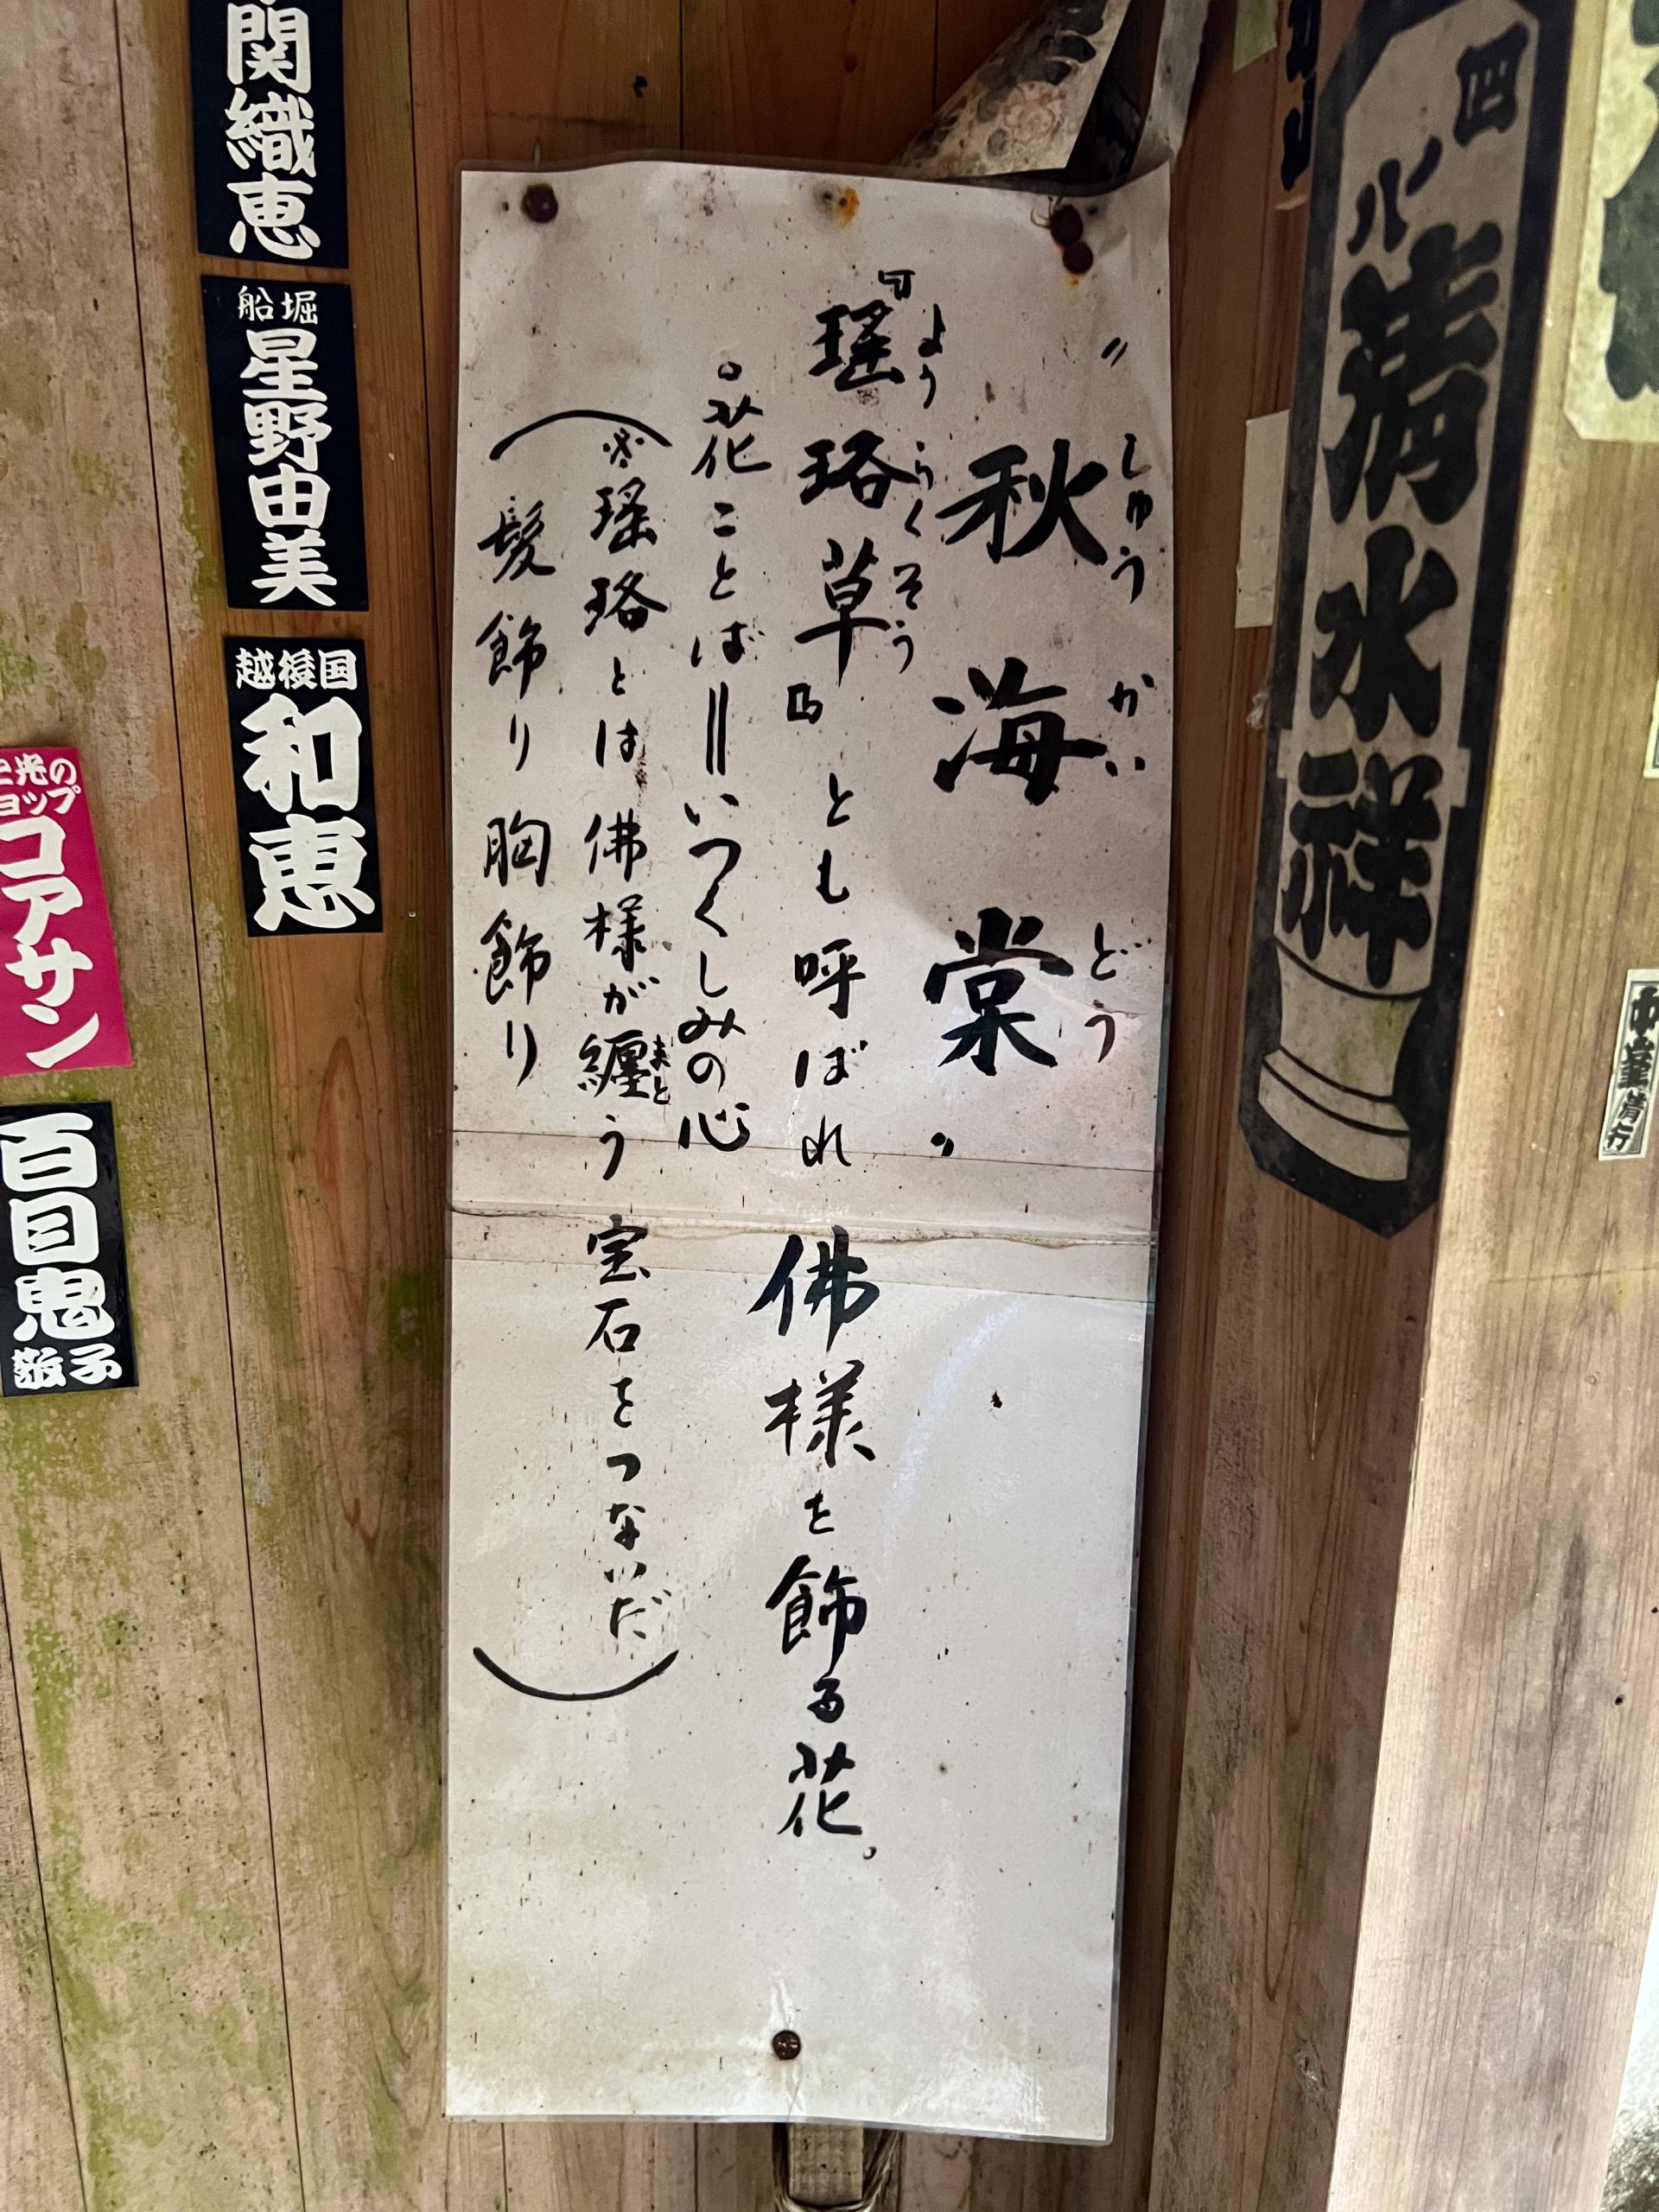 〃秋海棠〃
しゅうかいどう
『瑶珞草』とも呼ばれ 佛様を飾る花。
ようらくそう
。花ことば＝いつくしみの心
(※瑶珞とは 佛様が纏う 宝石をつないだ
まと
髪飾り 胸飾り)
関織恵
船堀
星野由美
越後国
和恵
コアサン
百目鬼
敬子
四
八
清水祥